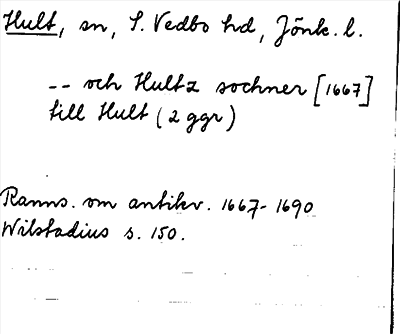 Hult, sn, S. Vedbo hd, Jönk. l.
-- och Hultz sochner [1667]
till Hult (2 ggr)
Ranns. om antikv. 1667-1690
Wilstadius s. 150.